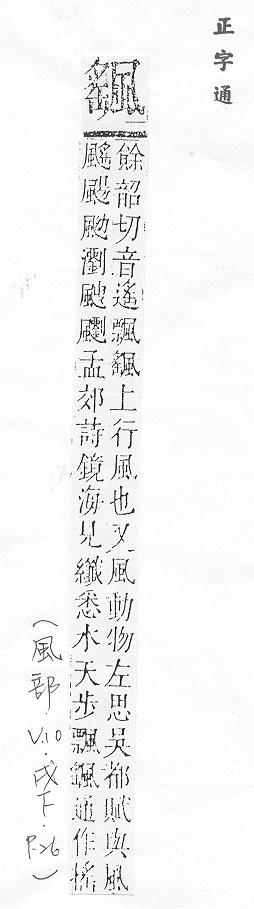 正字通
颻
餘韶切音遙飄颻上行風也又風動物左思吳都賦與風
䬙颺䬀瀏颼飀孟郊詩鏡海見纖悉水天步飄颻通作搖
(風部·V.10·戌下·P.26)